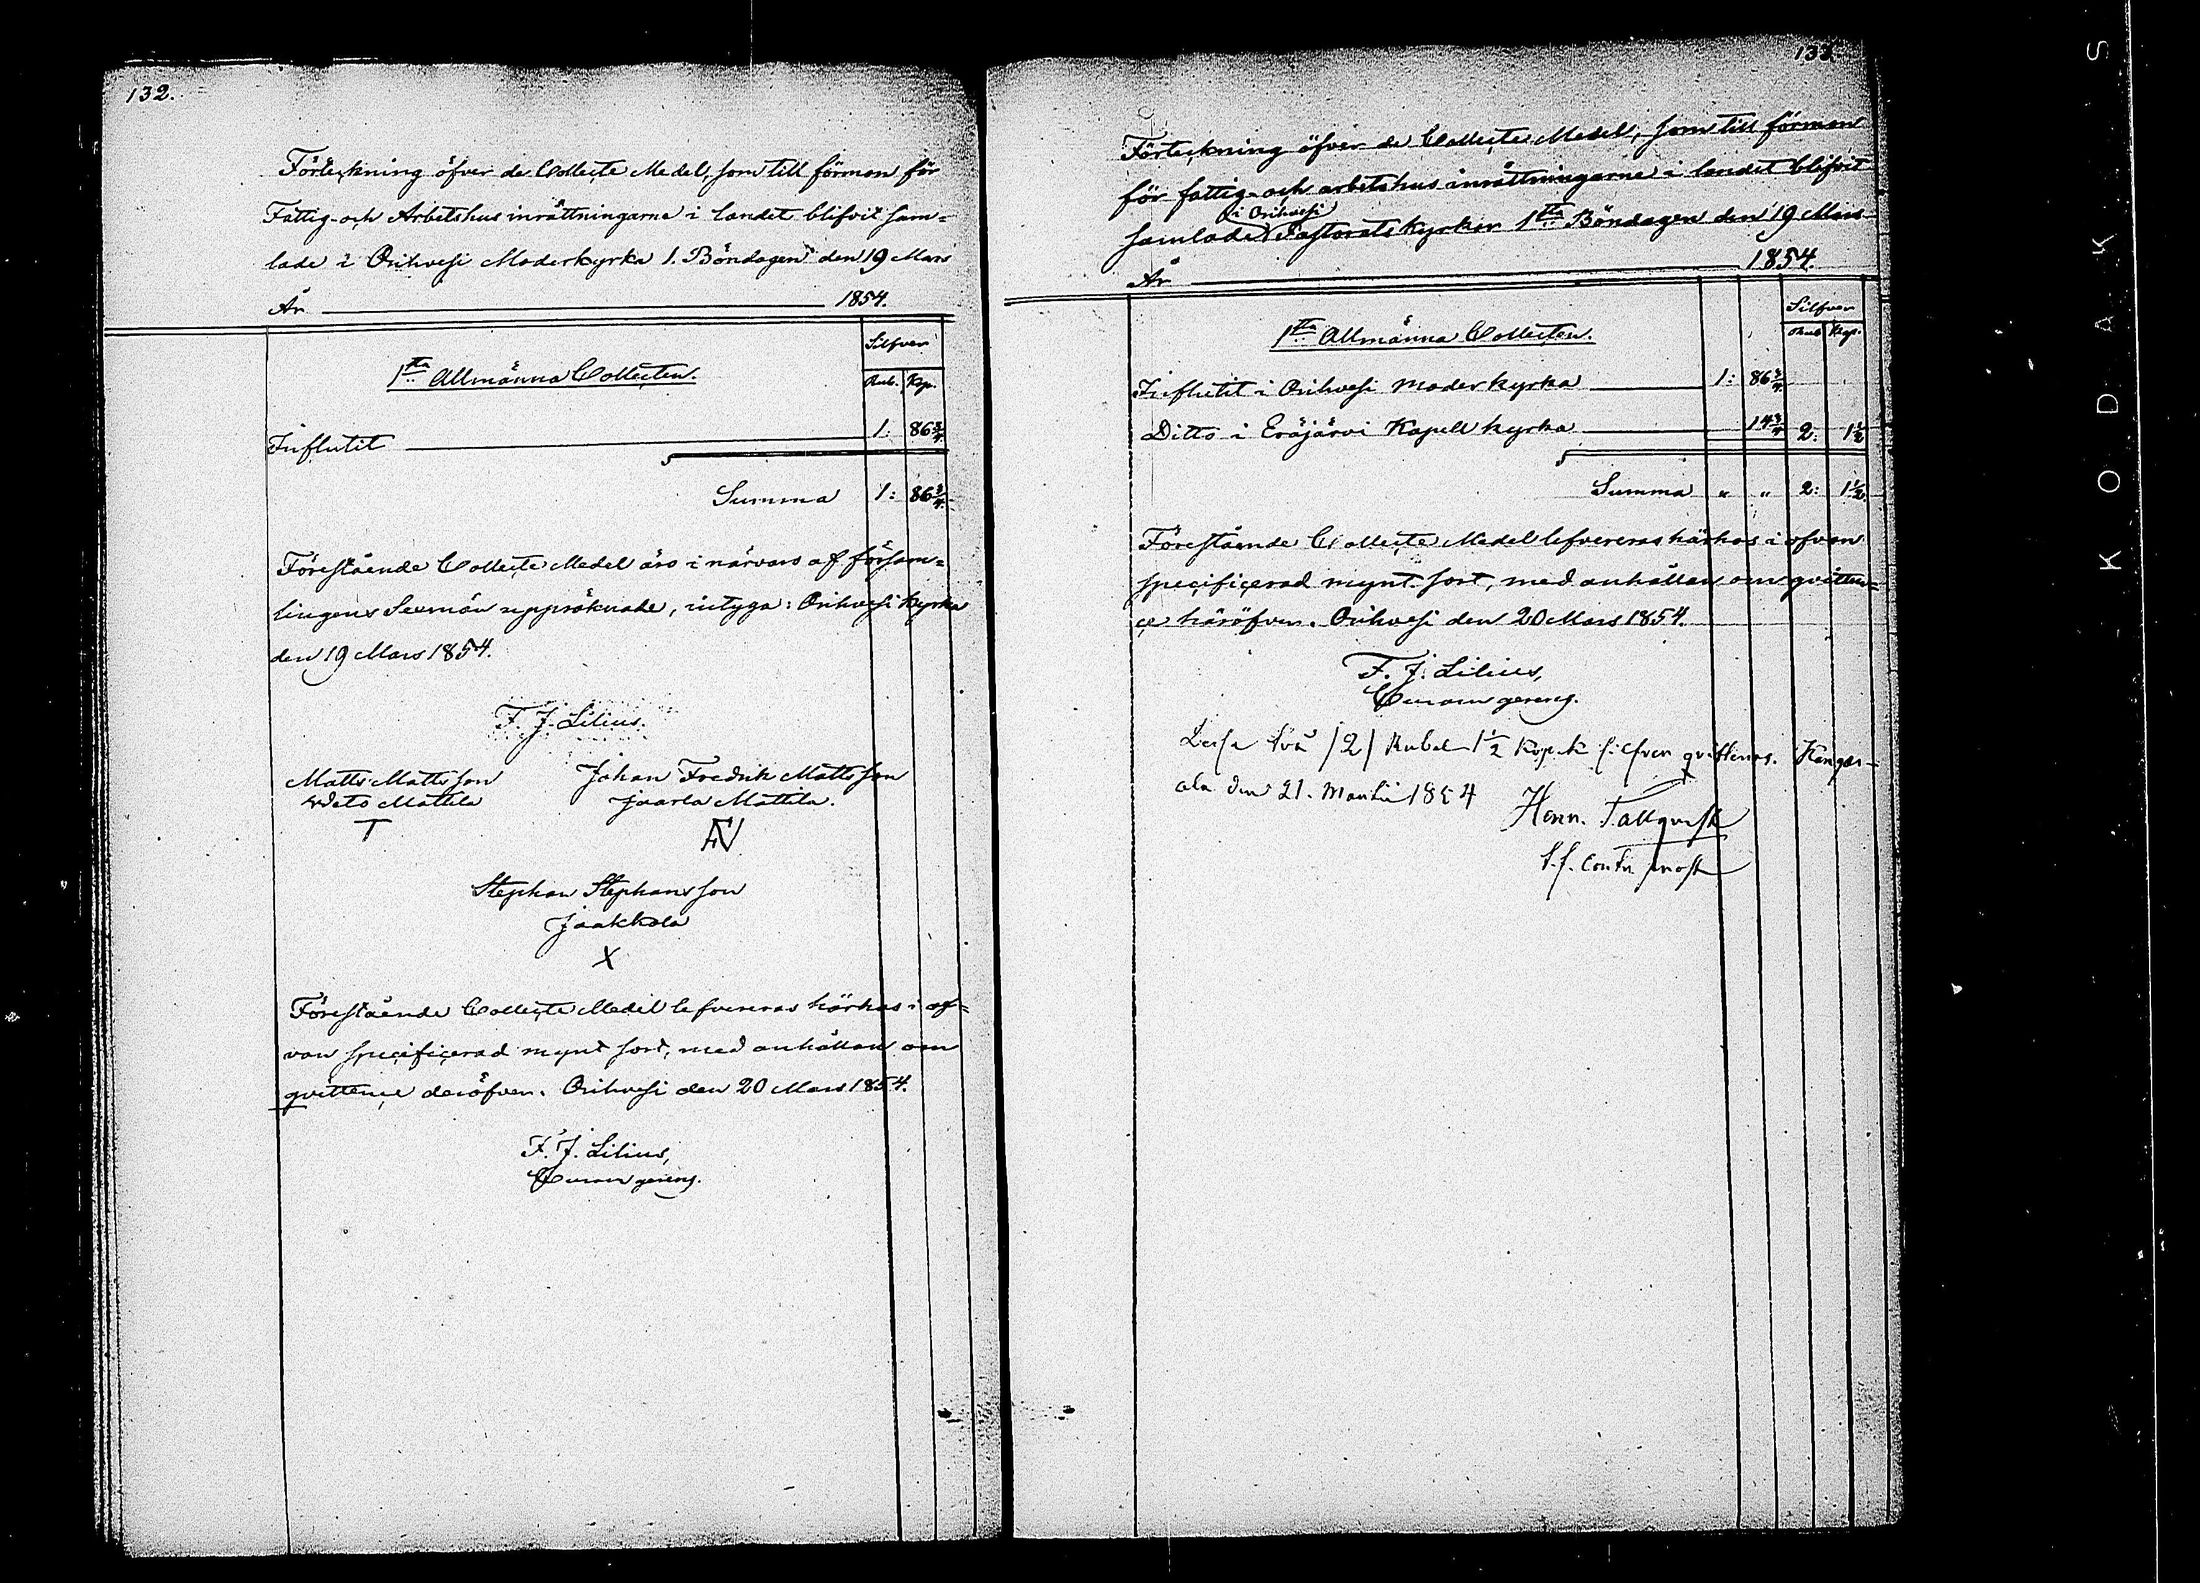 132.
Förteckning öfver de Collecte Medel, som till förmon för
Fattig- och Arbetshusinrättningarna i landet blifvit sam=
lade i Orihvesi Moderkyrka 1. Böndagen den 19 Mars
År 1854.
Silfver
1sta Allmänna Collecten.
Rub. Kop.
Influtit 1: 86 3/4
Summa 1: 86 3/4.
Förestående Collecte Medel äro i närvaro af försam=
lingens Sexmän uppräknade, intyga: Orihvesi Kyrka
den 19 Mars 1854.
F. J. Lilius.
Matts Mattsson Johan Fredrik Mattsson
Mattila Jaarla Mattila.
T
Stephan Stephansson
Jaakkola
X
Förestående Collecte Medel lefvereras härhos i of=
van specificerad mynt sort, med anhållan om
qvittence deröfver. Orihvesi den 20 Mars 1854.
F. J. Lilius,
Curam gerens.
133.
Förteckning öfver de Collecte Medel, som till förmon
för fattig- och arbetshus inrättningarne i landet blifvit
i Orihvesi
samlade Pastorats kyrkor 1sta Böndagen den 19 Mars
År 1854.
Silfver
1sta Allmänna Collecten.
Rub Kop.
Influtit i Orihvesi Moderkyrka 1: 86 3/4
Ditto i Eräjärvi Kapell kyrka 14 3/4 2: 1 1/2
Summa " " 2: 1 1/2.
Förestående Collecte Medel lefvereras härhos i ofvan
specificerad mynt sort, med anhållan om qvitten=
ce häröfver. Orihvesi den 20 Mars 1854.
F. J. Lilius,
Curam gerens.
Dessa två /2/ Rubel 1 1/2 Kopek silfver qvitteras. Kangas-
ala den 21. Martii 1854
Henr. Tallqvist
Contr prost
KODAK S